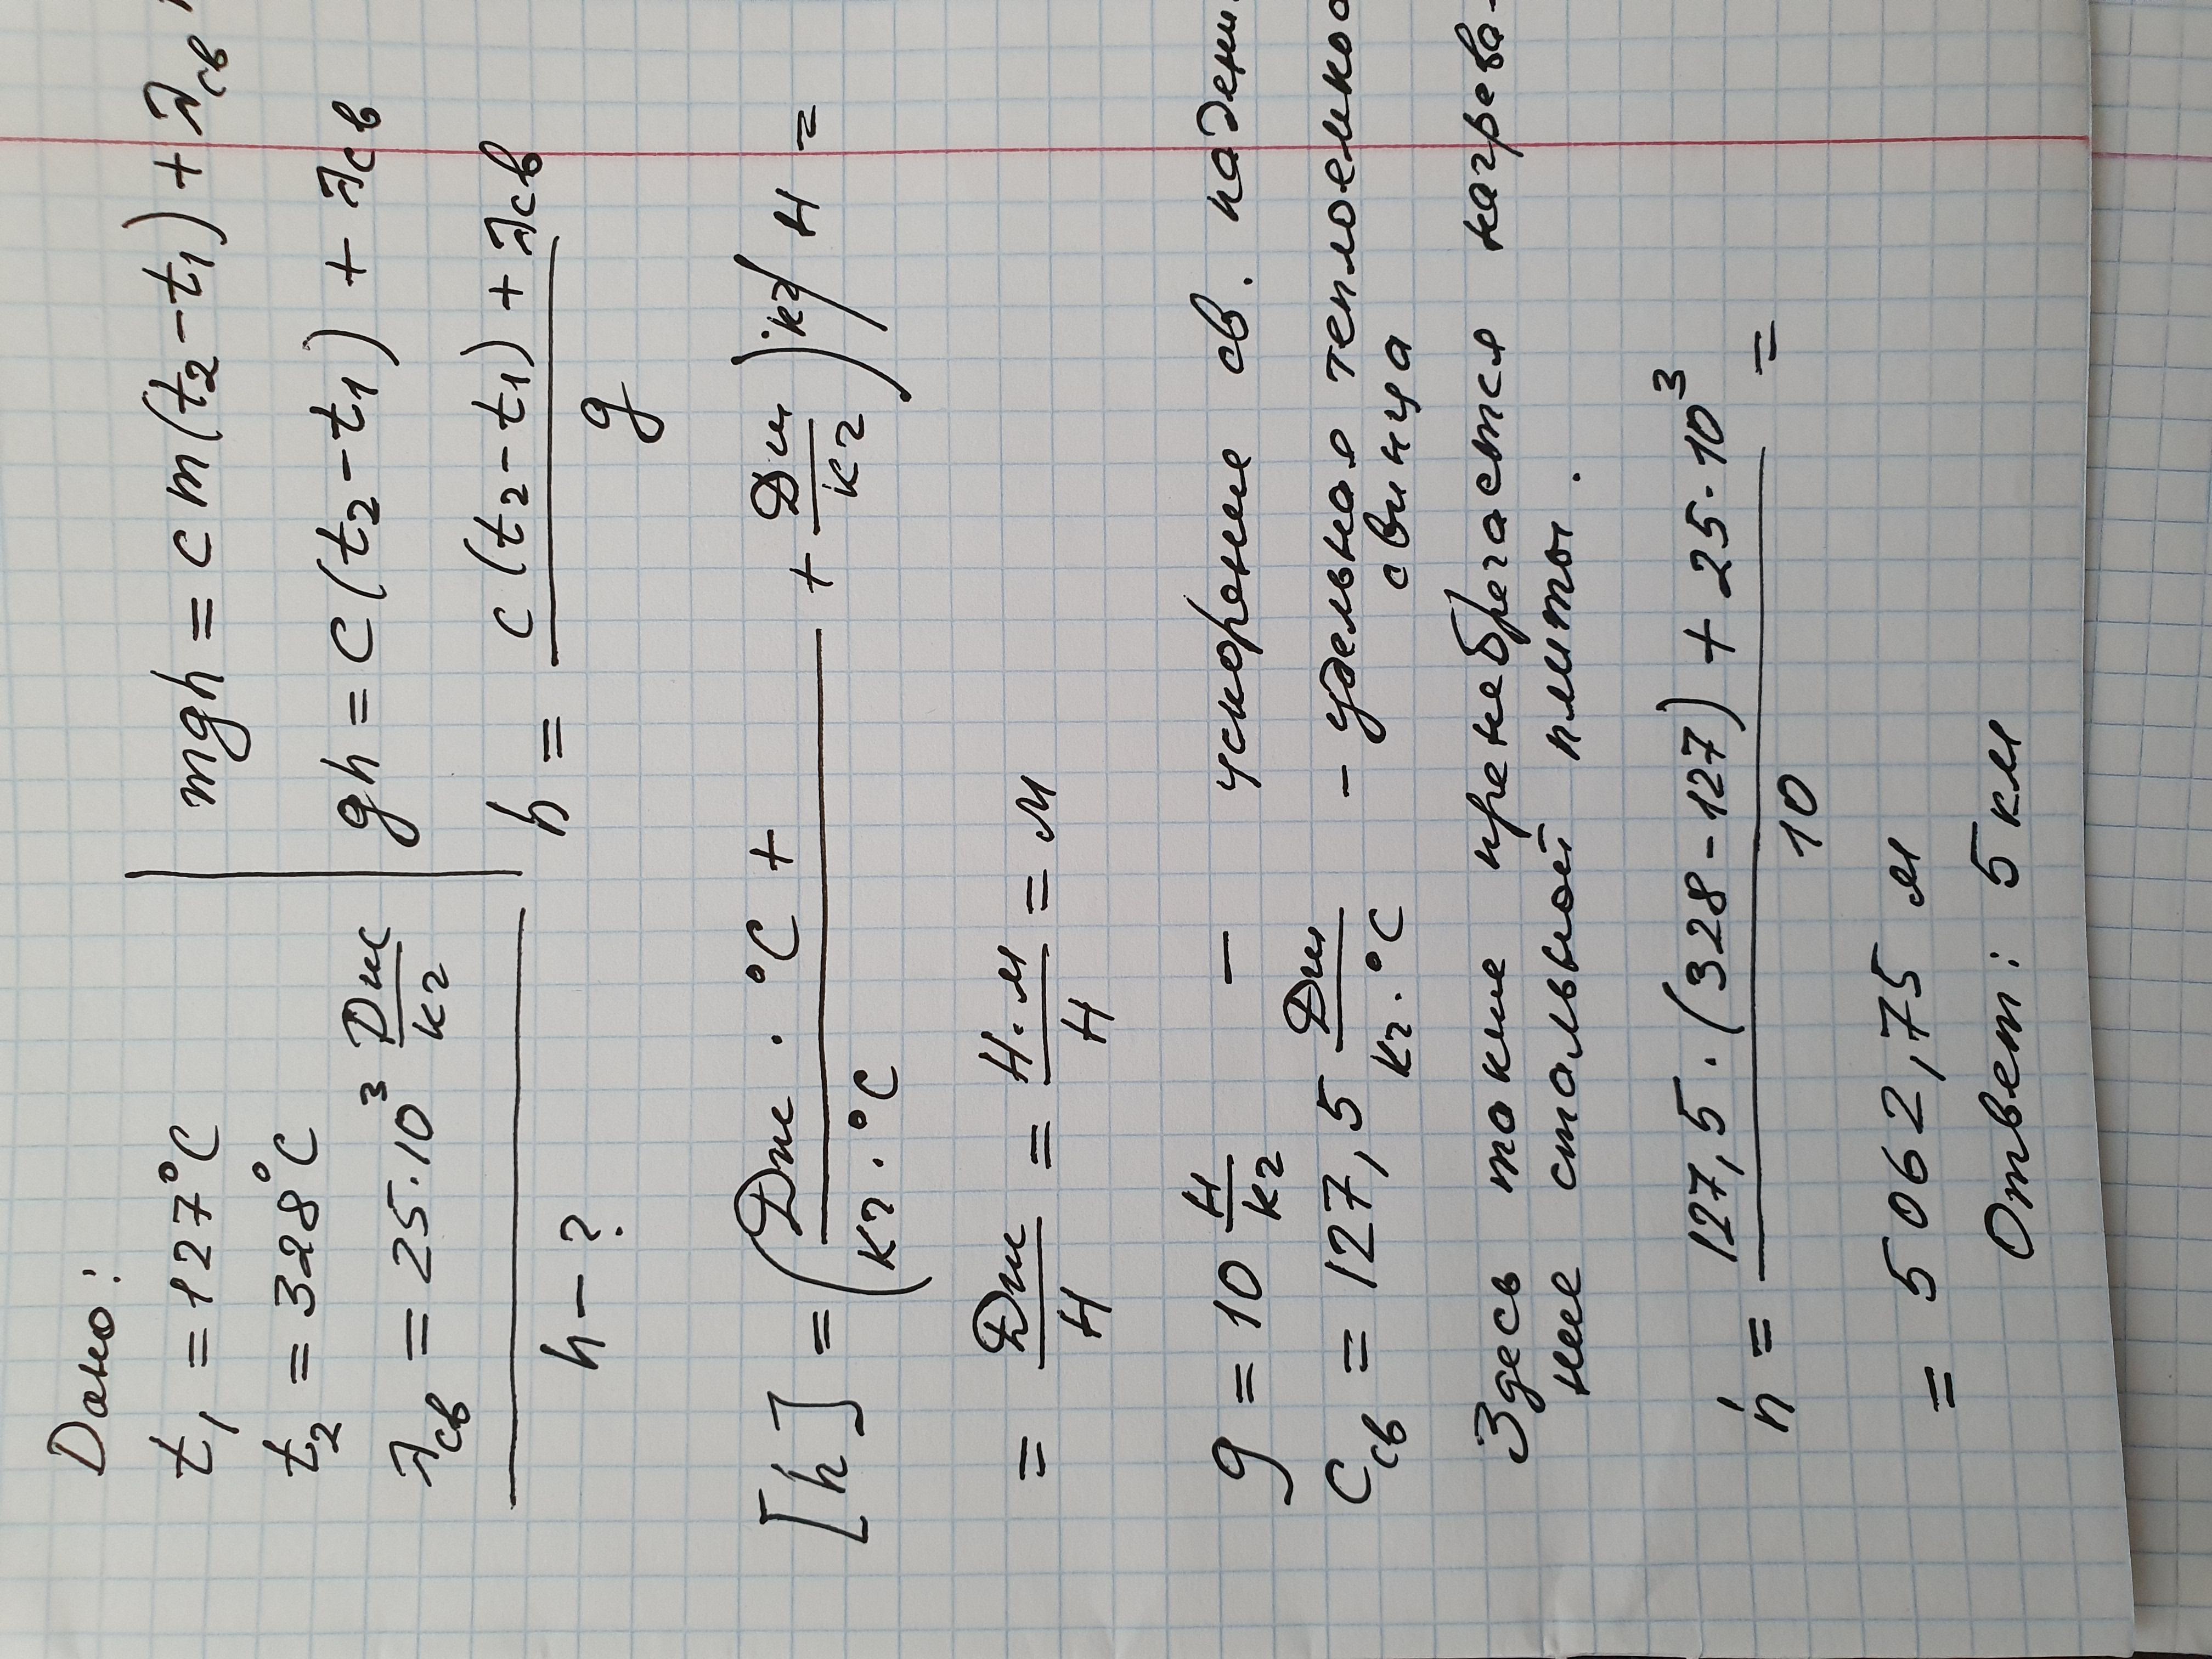 Дано:
t₁ = 127°C
t₂ = 328°C
λсв = 25·10³ Дж/кг
h – ?
mgh = cm(t₂ – t₁) + λсв
gh = c(t₂ – t₁) + λсв
h = (c(t₂ – t₁) + λсв)/g
[h] = (Дж · °C + /кг·°C + Дж/кг)·кг/Н =
= Дж/Н = Н·м/Н = м
g = 10 Н/кг – ускорение св. падени
Cсв = 127,5 Дж/кг·°C – удельная теплоемко
свинца
Здесь также пренебрегается нагрева-
ние стальной плиты.
h = (127,5·(328-127) + 25·10³)/10 =
= 5062,75 м
Ответ: 5 км